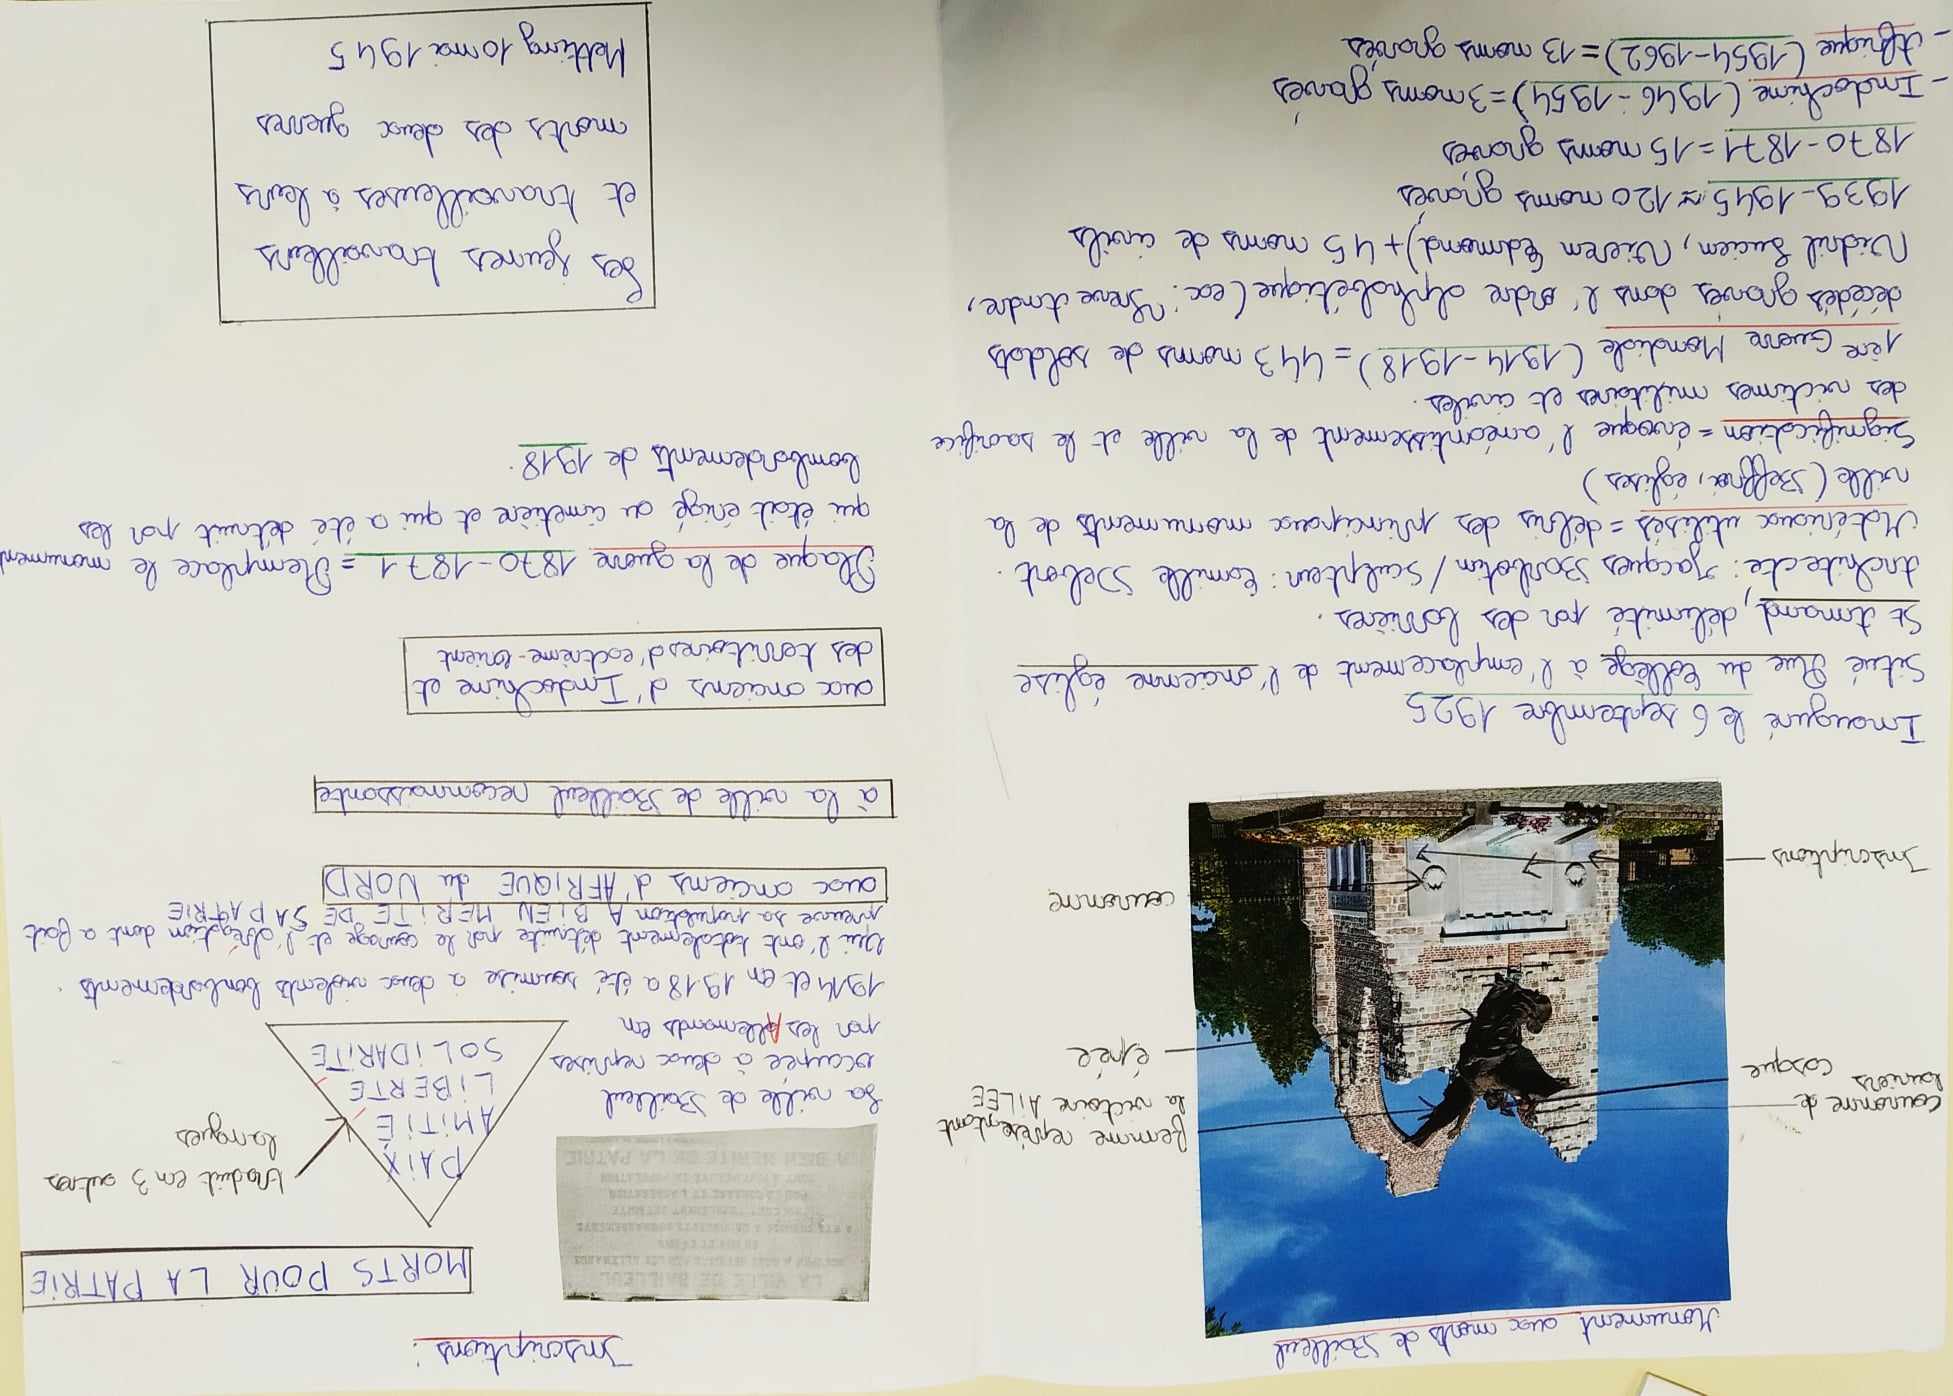 Monument aux morts de Bailleul
couronne de
lauriers
casque
Inscriptions
femme représentant
la victoire AILEE
épée
couronne
Inauguré le 6 septembre 1925
Situé Rue du Collège à l'emplacement de l'ancienne église
St Amand, délimité par des barrières.
Architecte: Jacques Barbotin / Sculpteur: Camille Debert.
Matériaux utilisés = débris des principaux monuments de la
ville (Beffroi, églises)
Signification = évoque l'anéantissement de la ville et le sacrifice
des victimes militaires et civiles.
1ère Guerre Mondiale (1914-1918) = 443 noms de soldats
décédés gravés dans l'ordre alphabétique (ex: Andre,
Lucien, Edmond) + 45 noms de civils
1939-1945 ≈ 120 noms gravés
1870-1871 = 15 noms gravés
- Indochine (1946-1954) = 3 noms gravés
- Afrique (1954-1962) = 13 noms gravés
Inscriptions :
MORTS POUR LA PATRIE
LA VILLE DE BAILLEUL
OCCUPEE A DEUX REPRISES PAR LES ALLEMANDS
EN 1914 ET EN 1918
A ETE SOUMISE A DEUX VIOLENTS BOMBARDEMENTS
QUI L'ONT TOTALEMENT DETRUITE
PAR LE COURAGE ET L'ABNEGATION
DONT A FAIT PREUVE SA POPULATION
A BIEN MERITE DE LA PATRIE
PAIX
AMITIÉ
LIBERTE
SOLIDARITE
traduit en 3 autres
langues
La ville de Bailleul
occupée à deux reprises
par les Allemands en
1914 et en 1918 a été soumise à deux violents bombardements.
Qui l'ont totalement détruite par le courage et l'abnégation dont a fait
preuve sa population A BIEN MERITE DE SA PATRIE
aux anciens d'AFRIQUE du NORD
à la ville de Bailleul reconnaissante
aux anciens d'Indochine et
des territoires d'extrême-orient
Plaque de la guerre 1870-1871 = Remplace le monument
qui était érigé au cimetière et qui a été détruit par les
bombardements de 1918.
Les jeunes travailleurs
et travailleuses à leurs
morts des deux guerres
10 mai 1945